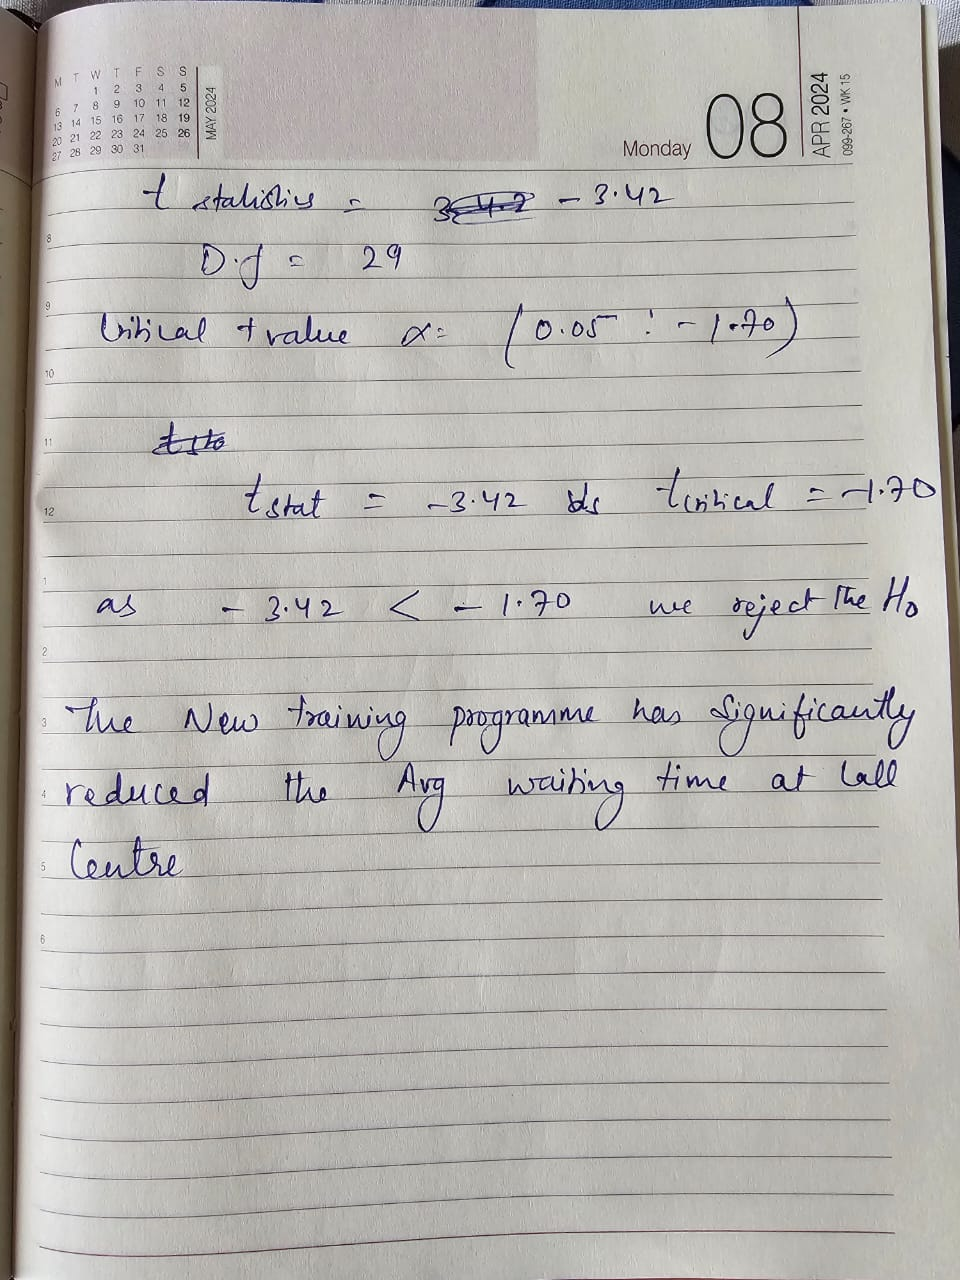 M T W T F S S
1 2 3 4 5
6 7 8 9 10 11 12
13 14 15 16 17 18 19
20 21 22 23 24 25 26
27 28 29 30 31
MAY 2024
Monday 08
APR 2024
099-267 • WK 15
t statistics = - 3.42
8
D.f = 29
9
Critical t value α = (0.05 : - 1.70)
10
11
t stat = -3.42 t critical = -1.70
12
1
as - 3.42 < - 1.70 we reject the H₀
2
3 The New training programme has significantly
4 reduced the Avg waiting time at Call
5 Centre
6